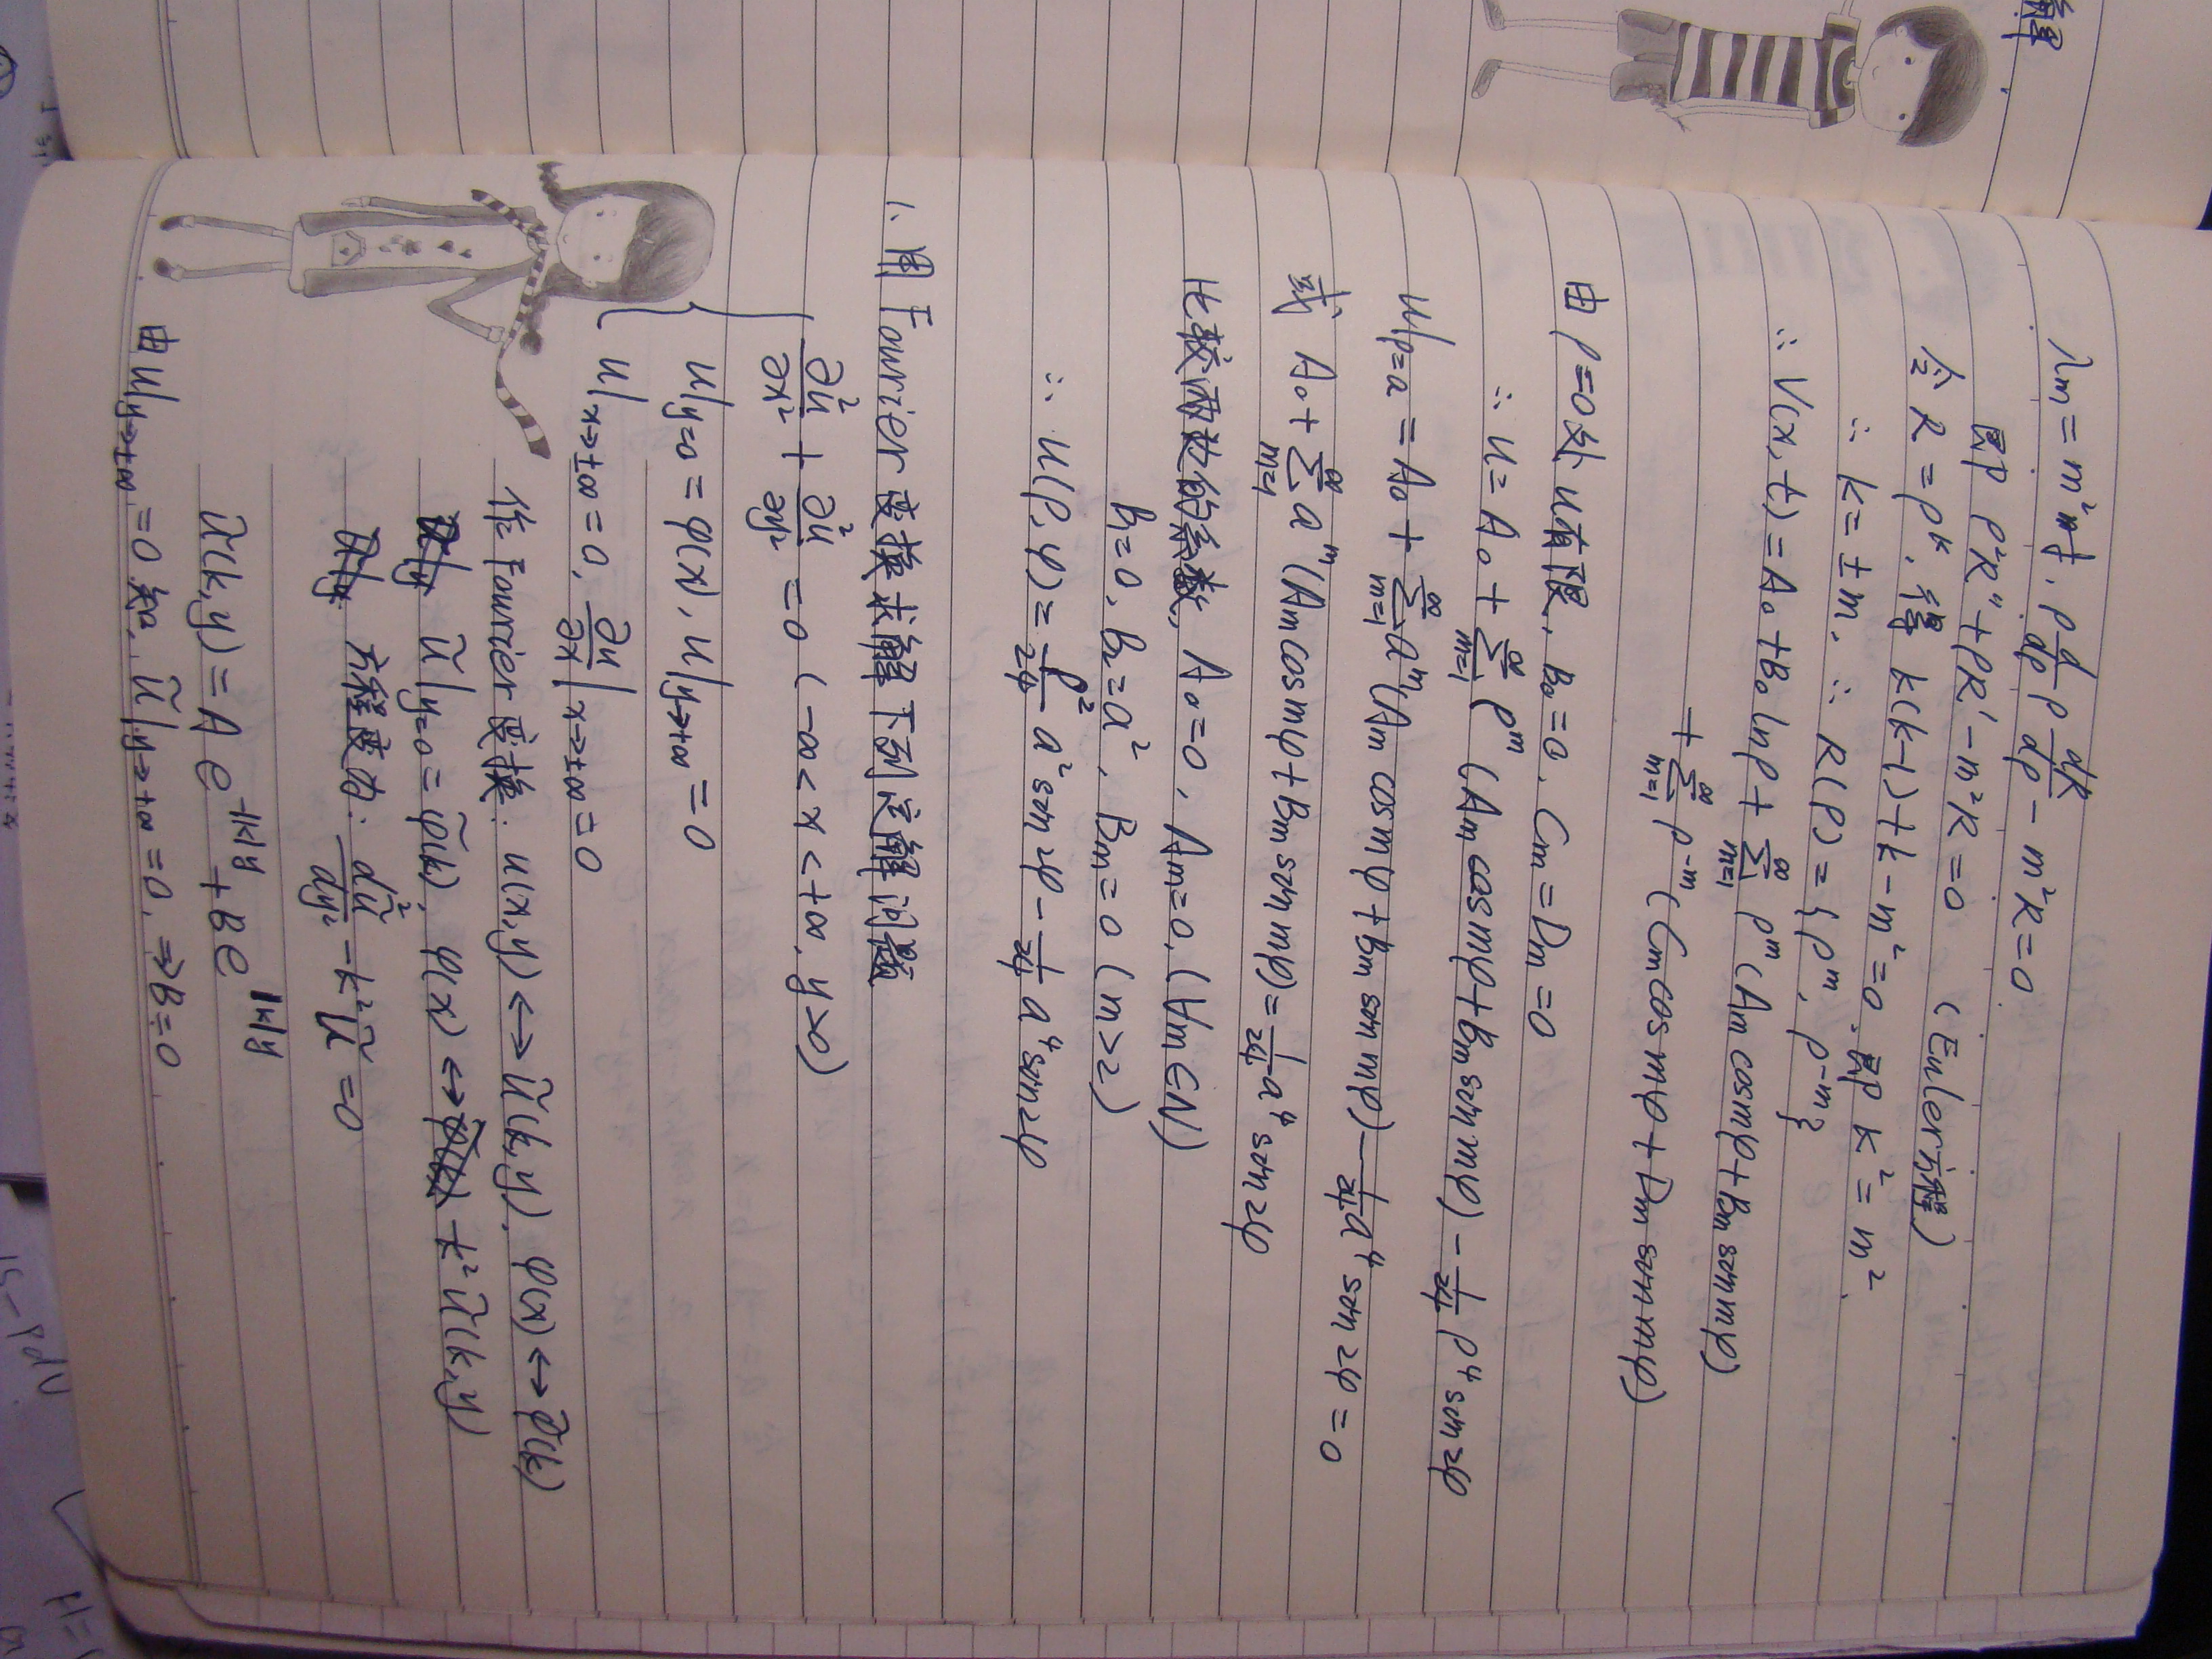 λm = m²时, ρ d/dρ ρ dR/dρ − m²R = 0
即 ρ²R'' + ρR' − m²R = 0 (Euler方程)
令 R = ρᵏ, 得 k(k−1) + k − m² = 0, 即 k² = m²
∴ k = ±m, ∴ R(ρ) = {ρᵐ, ρ⁻ᵐ}
∴ V(x, t) = A₀ + B₀ lnρ + ∑_{m=1}^{∞} ρᵐ (Am cosmφ + Bm sinmφ)
+ ∑_{m=1}^{∞} ρ⁻ᵐ (Cm cosmφ + Dm sinmφ)
由 ρ=0处 u有限, B₀ = 0, Cm = Dm = 0
∴ u = A₀ + ∑_{m=1}^{∞} ρᵐ (Am cosmφ + Bm sinmφ) − 1/24 ρ⁴ sin2φ
u|ρ=a = A₀ + ∑_{m=1}^{∞} aᵐ (Am cosmφ + Bm sinmφ) − 1/24 a⁴ sin2φ = 0
或 A₀ + ∑_{m=1}^{∞} aᵐ (Am cosmφ + Bm sinmφ) = 1/24 a⁴ sin2φ
比较两边的系数, A₀ = 0, Am = 0, (∀m∈N)
B₁ = 0, B₂ = a², Bm = 0 (m>2)
∴ u(ρ, φ) = ρ²/24 a² sin2φ − 1/24 a⁴ sin2φ
1、用 Fourier 变换求解下列定解问题
∂²u/∂x² + ∂²u/∂y² = 0 (−∞ < x < +∞, y>0)
u|y=0 = φ(x), u|y→+∞ = 0
u|x→±∞ = 0, ∂u/∂x|x→±∞ = 0
作 Fourier 变换: u(x,y) ↔ ũ(k,y), φ(x) ↔ φ̃(k)
ũ|y=0 = φ̃(k), φ(x) ↔ k² ũ(k,y)
方程变为: d²ũ/dy² − k²ũ = 0
ũ(k,y) = A e^{−|k|y} + B e^{|k|y}
由 u|y→+∞ = 0 知, ũ|y→+∞ = 0, ⇒ B = 0